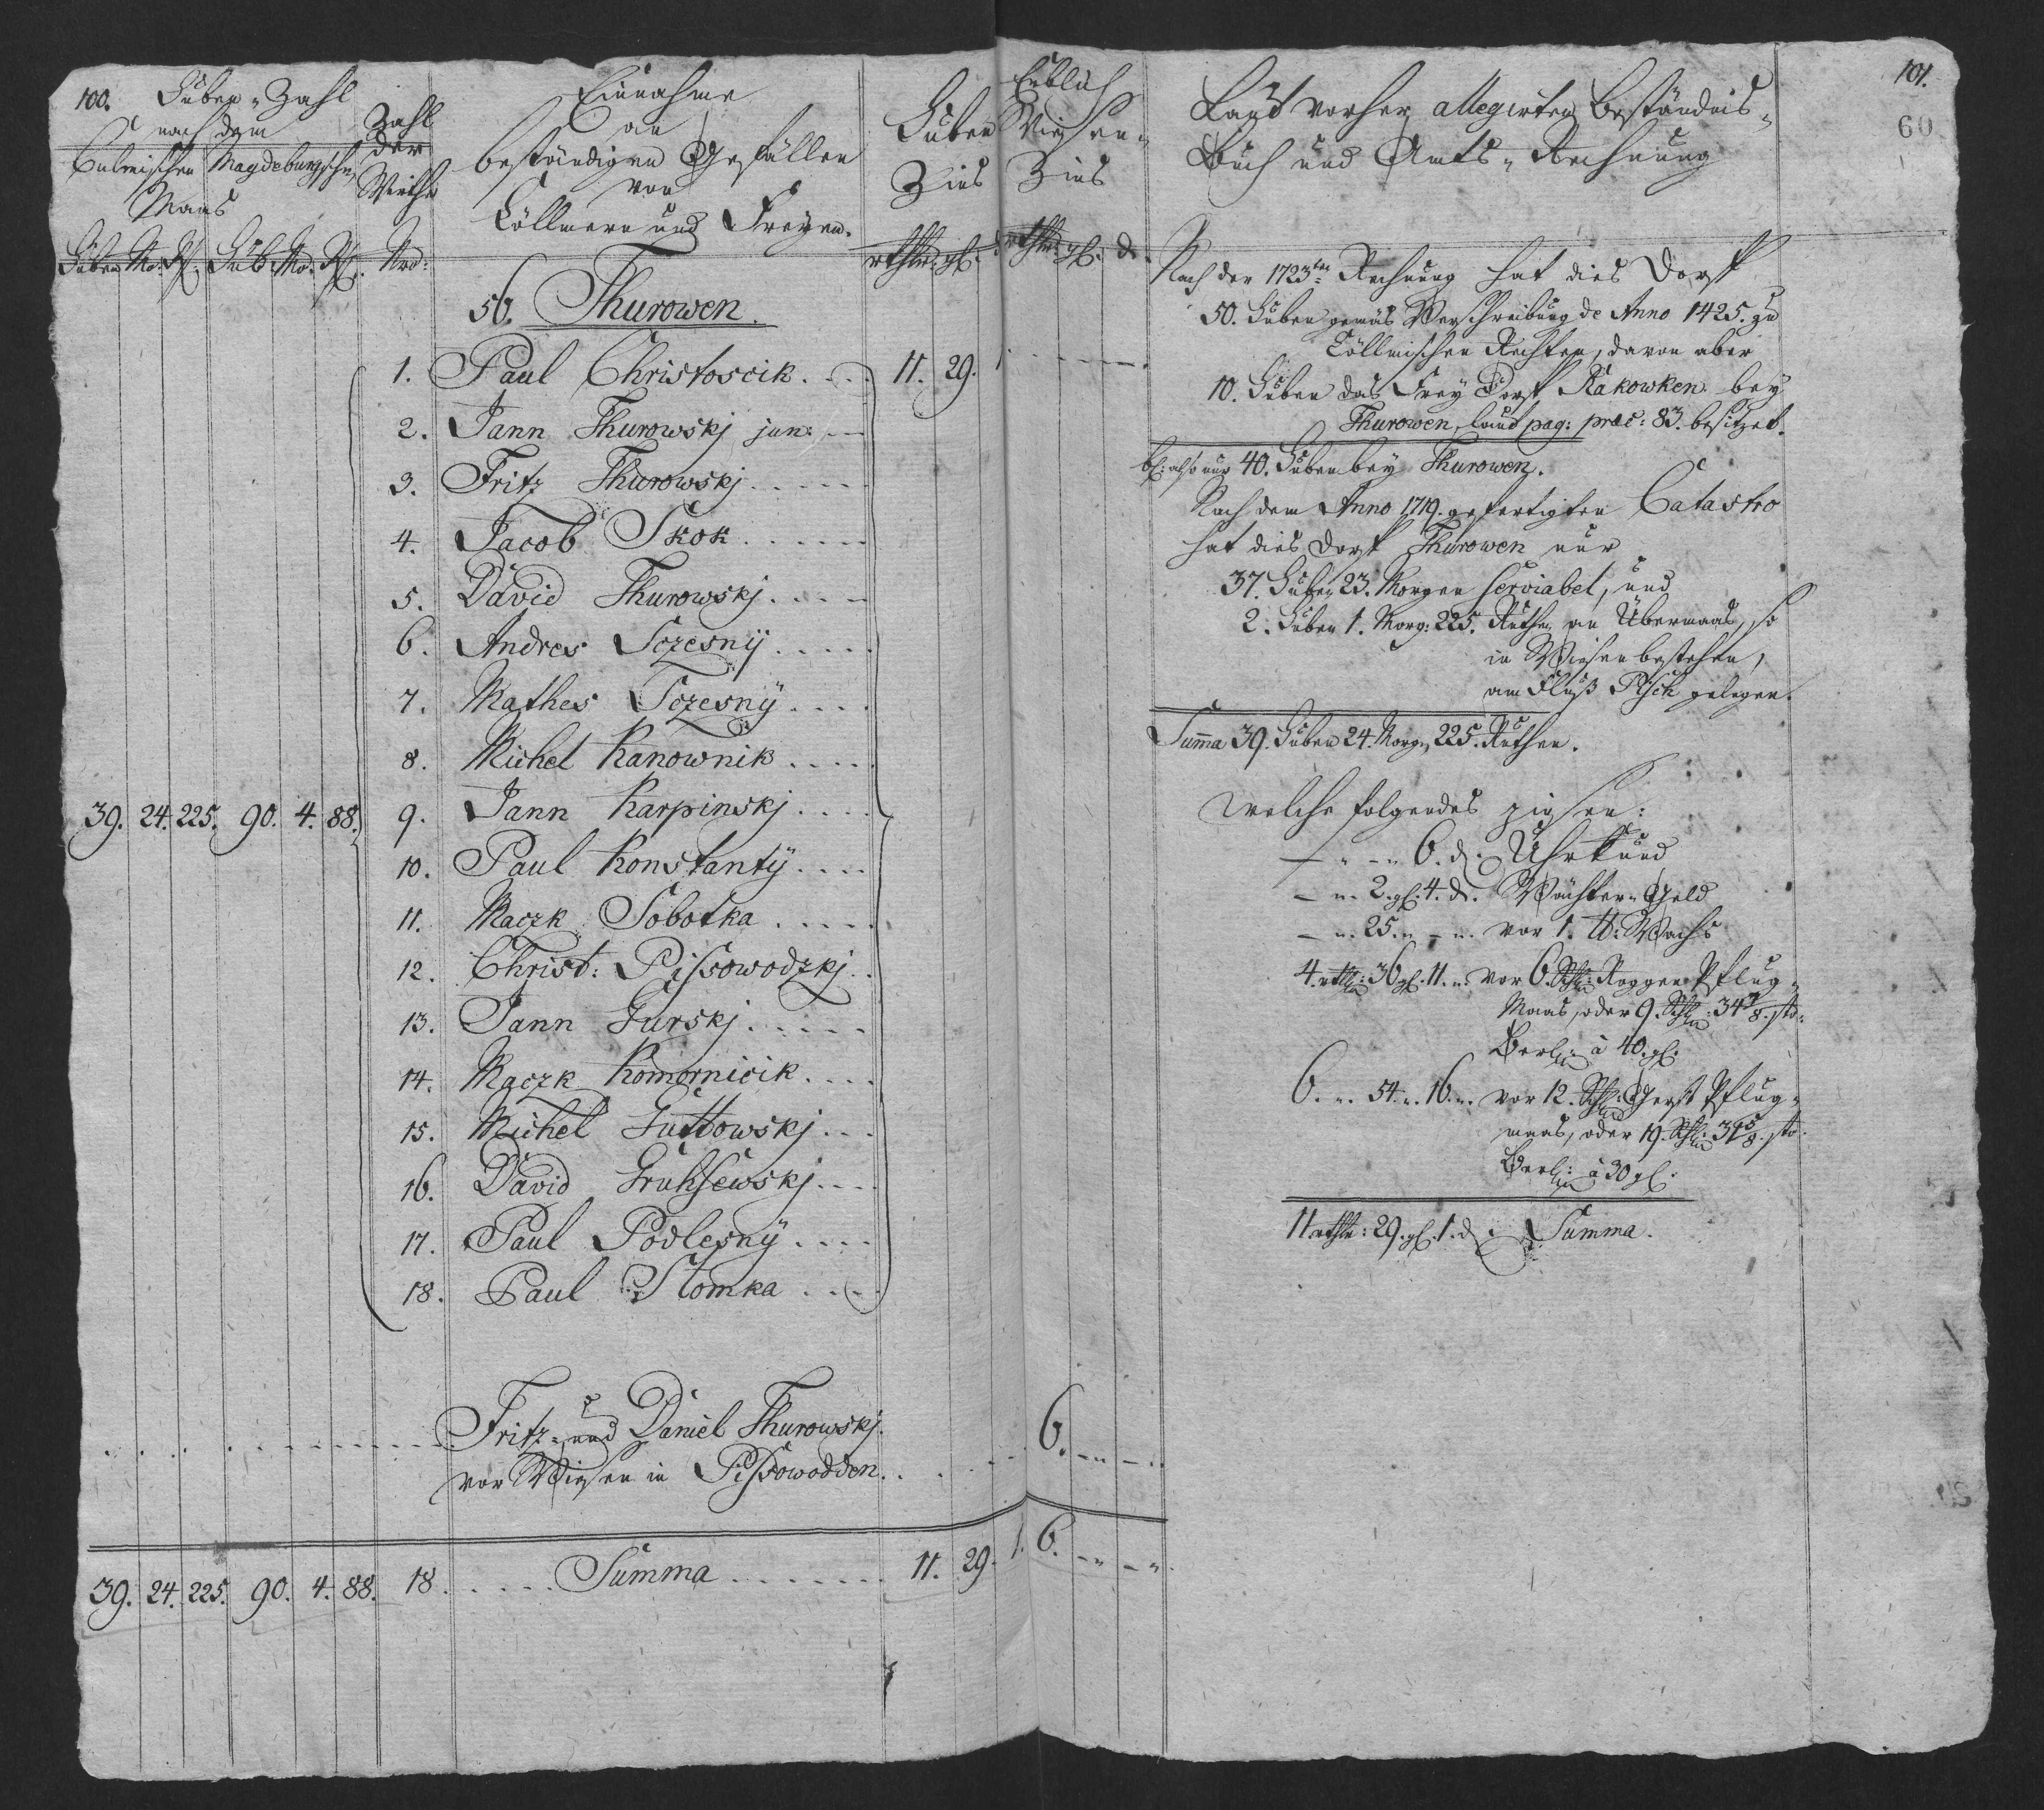 100.
Huben-Zahl
nach dem
Culmischen Magdeburgschen
Maas
Huben Mo: R. Hub: Mo: R.
Zahl
der
Wirthe
Nro:
Einnahme
an
beständigen Gefällen
von
Cöllmern und Freyen.
Huben
Zins
rthlr: gl.
Wiesen-
Zins
rthlr: gl. d.
56. Thurowen.
1. Paul Christoscik . . . . 11. 29. 1.
2. Jann Thurowskj jun:
3. Fritz Thurowskj . . . . .
4. Jacob Skok . . . . . .
5. David Thurowskj . . . .
6. Andres Sczesnÿ . . . . .
7. Mathes Sczesnÿ . . . .
8. Michel Kanownik . . . .
39. 24. 225. 90. 4. 88. 9. Jann Karpinskj . . . .
10. Paul Konstantÿ . . . .
11. Maczk Sobotka . . . . .
12. Christ: Pissowodzkj . .
13. Jann Gurskj . . . . .
14. Maczk Komornicik . . . .
15. Michel Guttowskj . . .
16. David Gruhsewskj . . . .
17. Paul Podlesnÿ . . . .
18. Paul Slomka . . . .
Fritz- und Daniel Thurowskj.
vor Wiesen in Pissowodden. . . . 6. - " - "
39. 24. 225. 90. 4. 88. 18. . . . . . Summa . . . . . . . 11. 29. 1. 6. - " - "
101.
60
Laut vorher allegirten Beständnis-
Buch und Amts-Rechnung
Nach der 1723ten Rechnung hat dies Dorff
50. Huben gemäs Verschreibung de Anno 1425. zu
Cöllmischen Rechten, davon aber
10. Huben das Frey Dorff Rakowken bey
Thurowen, laut pag: præc: 83. besitzet.
bl: also nur 40. Huben bey Thurowen.
Nach dem Anno 1719. gefertigten Catastro
hat dies Dorff Thurowen nur
37. Huben 23. Morgen serviabel, und
2. Huben 1. Morg: 225. Ruthen an Übermaas, so
in Wiesen bestehen,
am Fluß Pisch gelegen.
Suma 39. Huben 24. Morg: 225. Ruthen.
welche folgendes zinsen:
- " - " 6. d. Uhrkund
- " 2. gl. 4. d. Wächter-Geld
- " 25. " - " vor 1. tt: Wachs
4. rthlr: 36 gl. 11. " vor 6. Schfl: Roggen Pflug-
Maas, oder 9. Schfl: 34 7/8. stö:
Berl: à 40. gl.
6. " 54. " 16. " vor 12. Schfl: Gerst Pflug-
maas, oder 19. Schfl: 34 5/8. stö:
Berl: à 30 gl.
11 rthlr: 29. gl. 1. d. Summa.